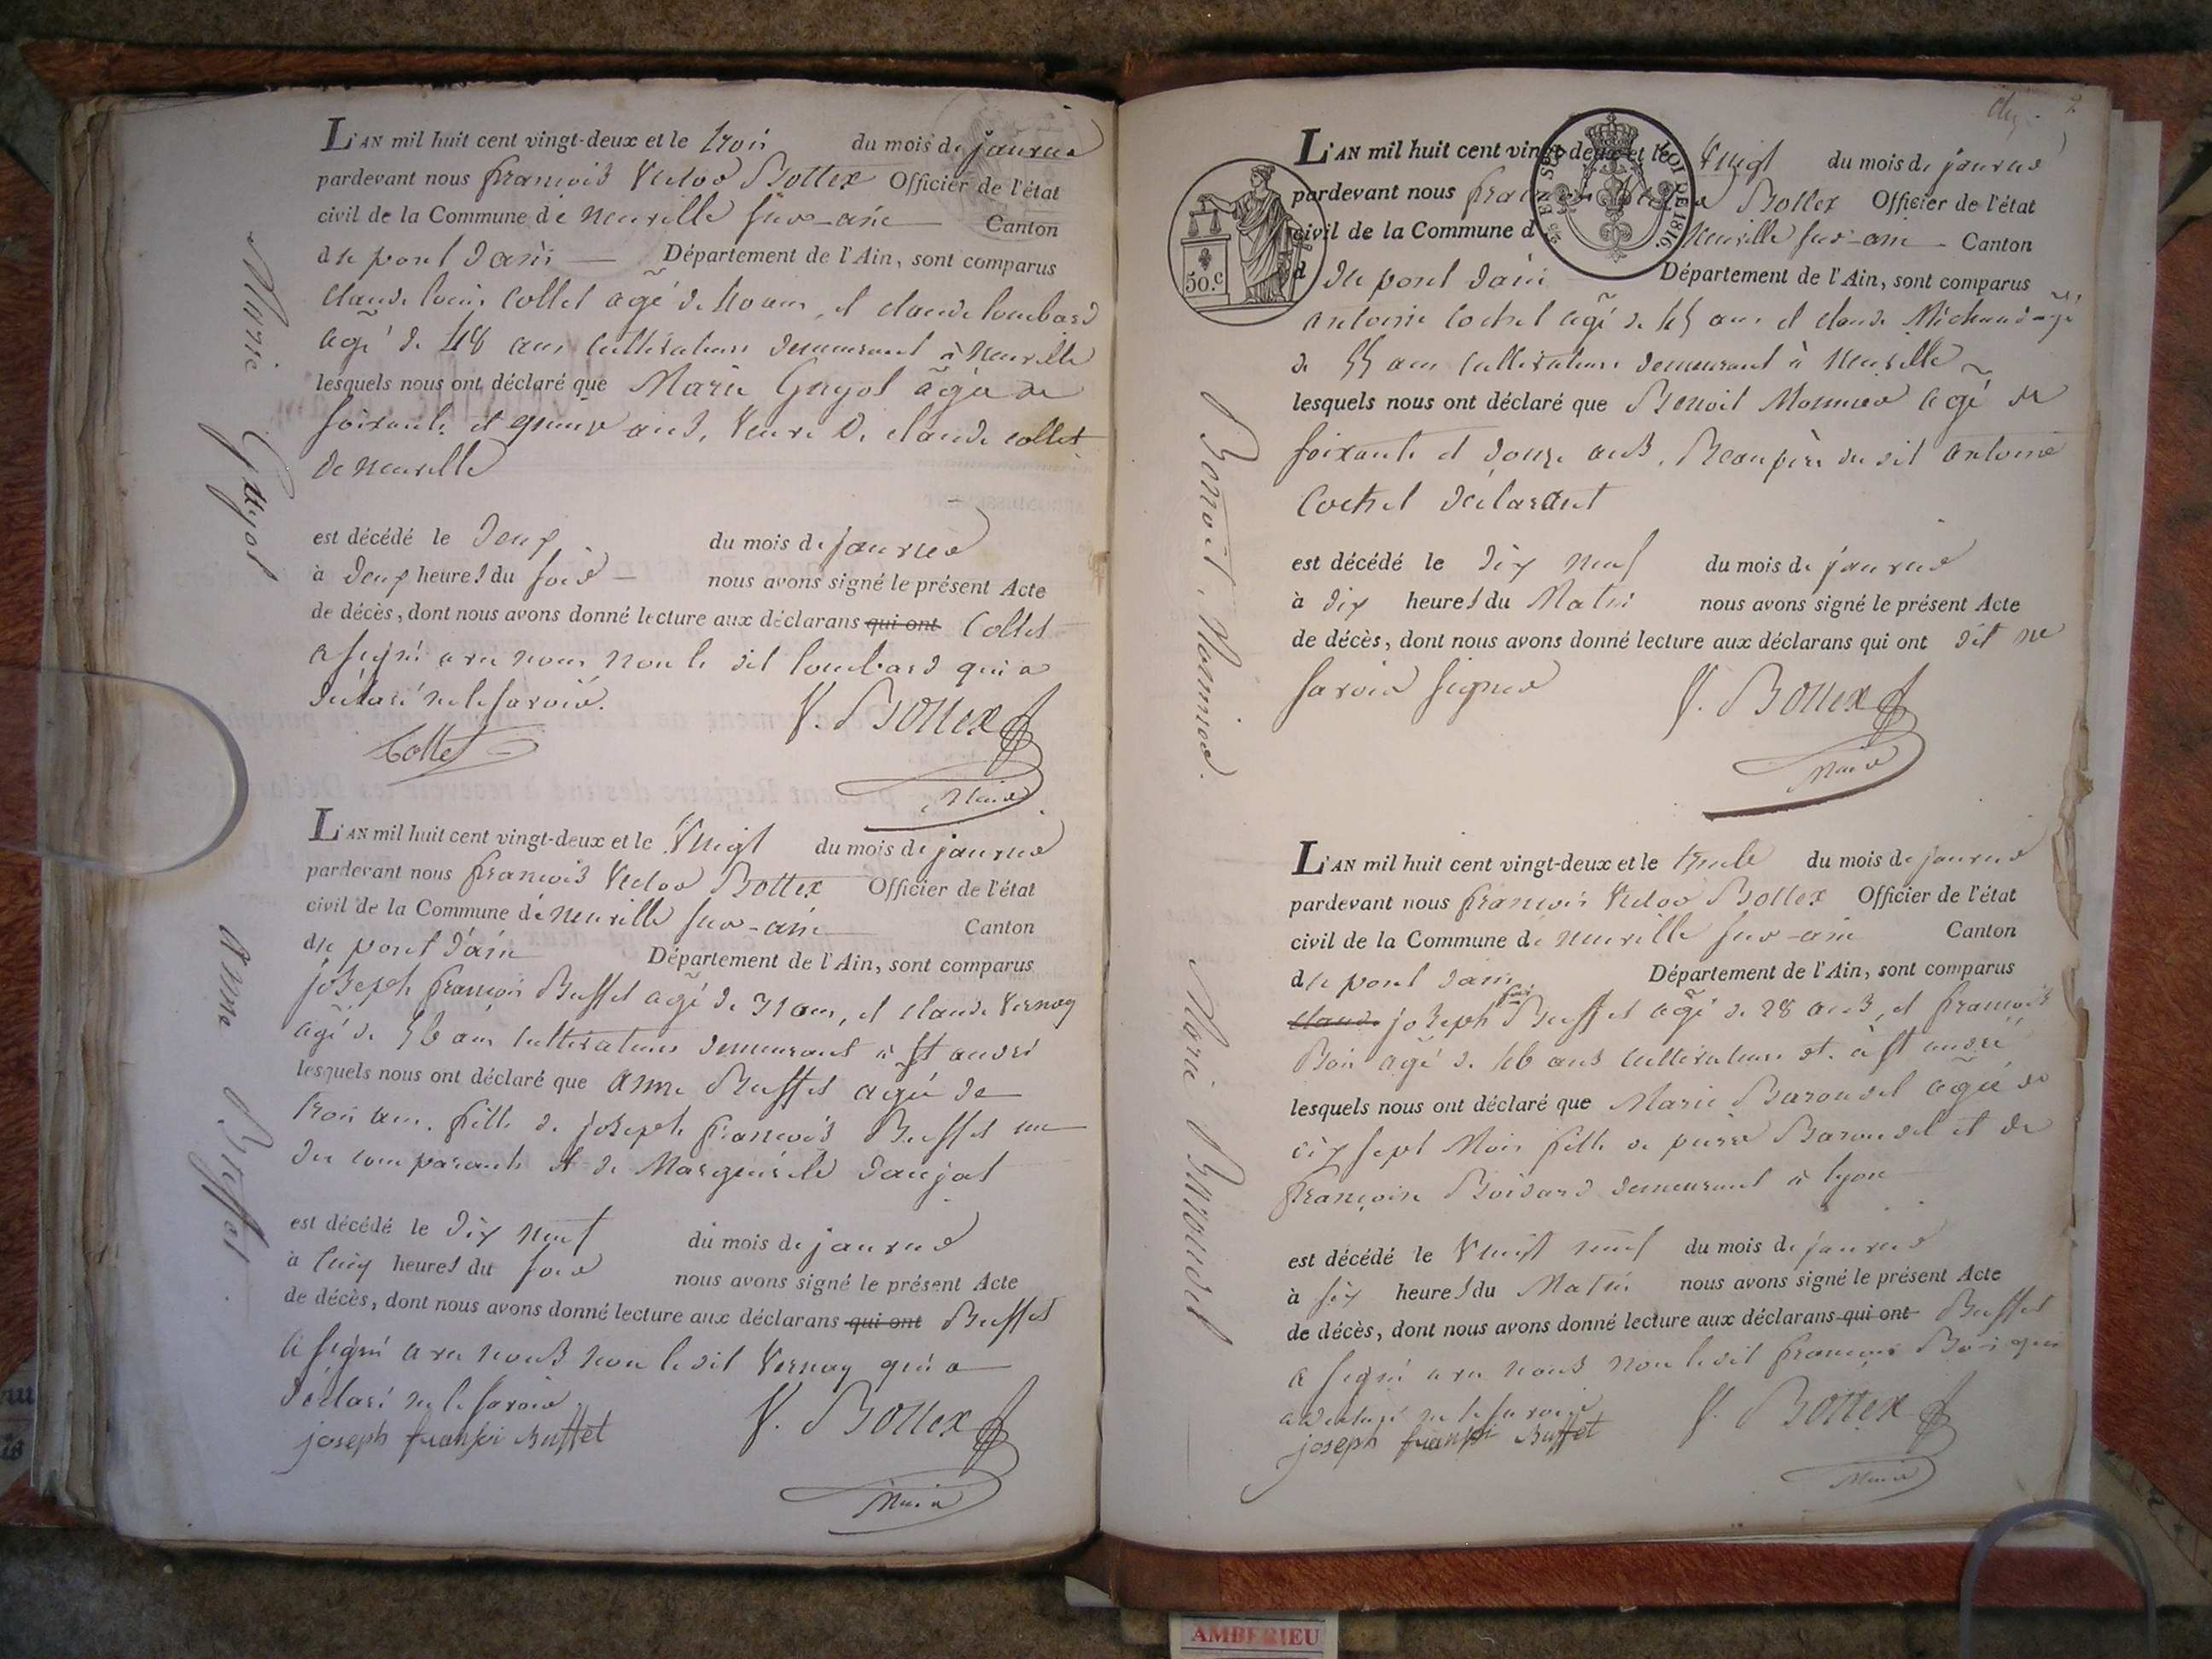 L'AN mil huit cent vingt-deux et le trois du mois de janvier
pardevant nous françois Victor Bottex Officier de l'état
civil de la Commune de neuville sur-ain Canton
de pont d'ain Département de l'Ain, sont comparus
claude louis Collet agé de 40 ans, et claude lombard
agé de 48 ans cultivateurs demeurant à neuville
lesquels nous ont déclaré que Marie Guyot agée de
soixante et quinze ans, veuve de claude collet
de neuville
est décédé le deux du mois de janvier
à deux heures du soir nous avons signé le présent Acte
de décès, dont nous avons donné lecture aux déclarans qui ont Collet
a signé avec nous non le dit lombard qui a
déclaré ne le savoir.
Collet
V. Bottex
Maire
Marie Guyot
L'AN mil huit cent vingt-deux et le vingt du mois de janvier
pardevant nous françois Victor Bottex Officier de l'état
civil de la Commune de neuville sur-ain Canton
de pont d'ain Département de l'Ain, sont comparus
joseph françois Buffet agé de 31 ans, et claude Vernay
agé de 56 ans cultivateurs demeurant à st andré
lesquels nous ont déclaré que anne Buffet agée de
trois ans, fille de joseph françois Buffet un
des comparants et de Marguerite daujat
est décédé le dix neuf du mois de janvier
à cinq heures du soir nous avons signé le présent Acte
de décès, dont nous avons donné lecture aux déclarans qui ont Buffet
a signé avec nous non le dit Vernay qui a
déclaré ne le savoir
joseph fransoi Buffet
V. Bottex
Maire
Anne Buffet
2
50.c
25 EN SUS
LOI DE 1816
L'AN mil huit cent vingt-deux et le vingt du mois de janvier
pardevant nous françois Victor Bottex Officier de l'état
civil de la Commune d neuville sur-ain Canton
d de pont d'ain Département de l'Ain, sont comparus
antoine Cochet agé de 45 ans et claude Michaud agé
de 55 ans cultivateurs demeurant à neuville
lesquels nous ont déclaré que Benoit Monnier agé de
soixante et douze ans, Beaupère du dit antoine
Cochet déclarant
est décédé le dix neuf du mois de janvier
à dix heures du Matin nous avons signé le présent Acte
de décès, dont nous avons donné lecture aux déclarans qui ont dit ne
savoir signer
V. Bottex
Maire
Benoit Monnier.
L'AN mil huit cent vingt-deux et le trente du mois de janvier
pardevant nous françois Victor Bottex Officier de l'état
civil de la Commune de neuville sur-ain Canton
de pont d'ain Département de l'Ain, sont comparus
claude joseph fois Buffet agé de 28 ans, et françois
Boin agé de 46 ans cultivateurs dt. à st andré
lesquels nous ont déclaré que Marie Baroudel agée de
dix sept Mois fille de pierre Baroudel et de
françoise Boisard demeurant à lyon
est décédé le vingt neuf du mois de janvier
à six heures du Matin nous avons signé le présent Acte
de décès, dont nous avons donné lecture aux déclarans qui ont Buffet
a signé avec nous non le dit françois Boin qui
a déclaré ne le savoir
joseph fransoi Buffet
V. Bottex
Maire
Marie Baroudel
AMBERIEU